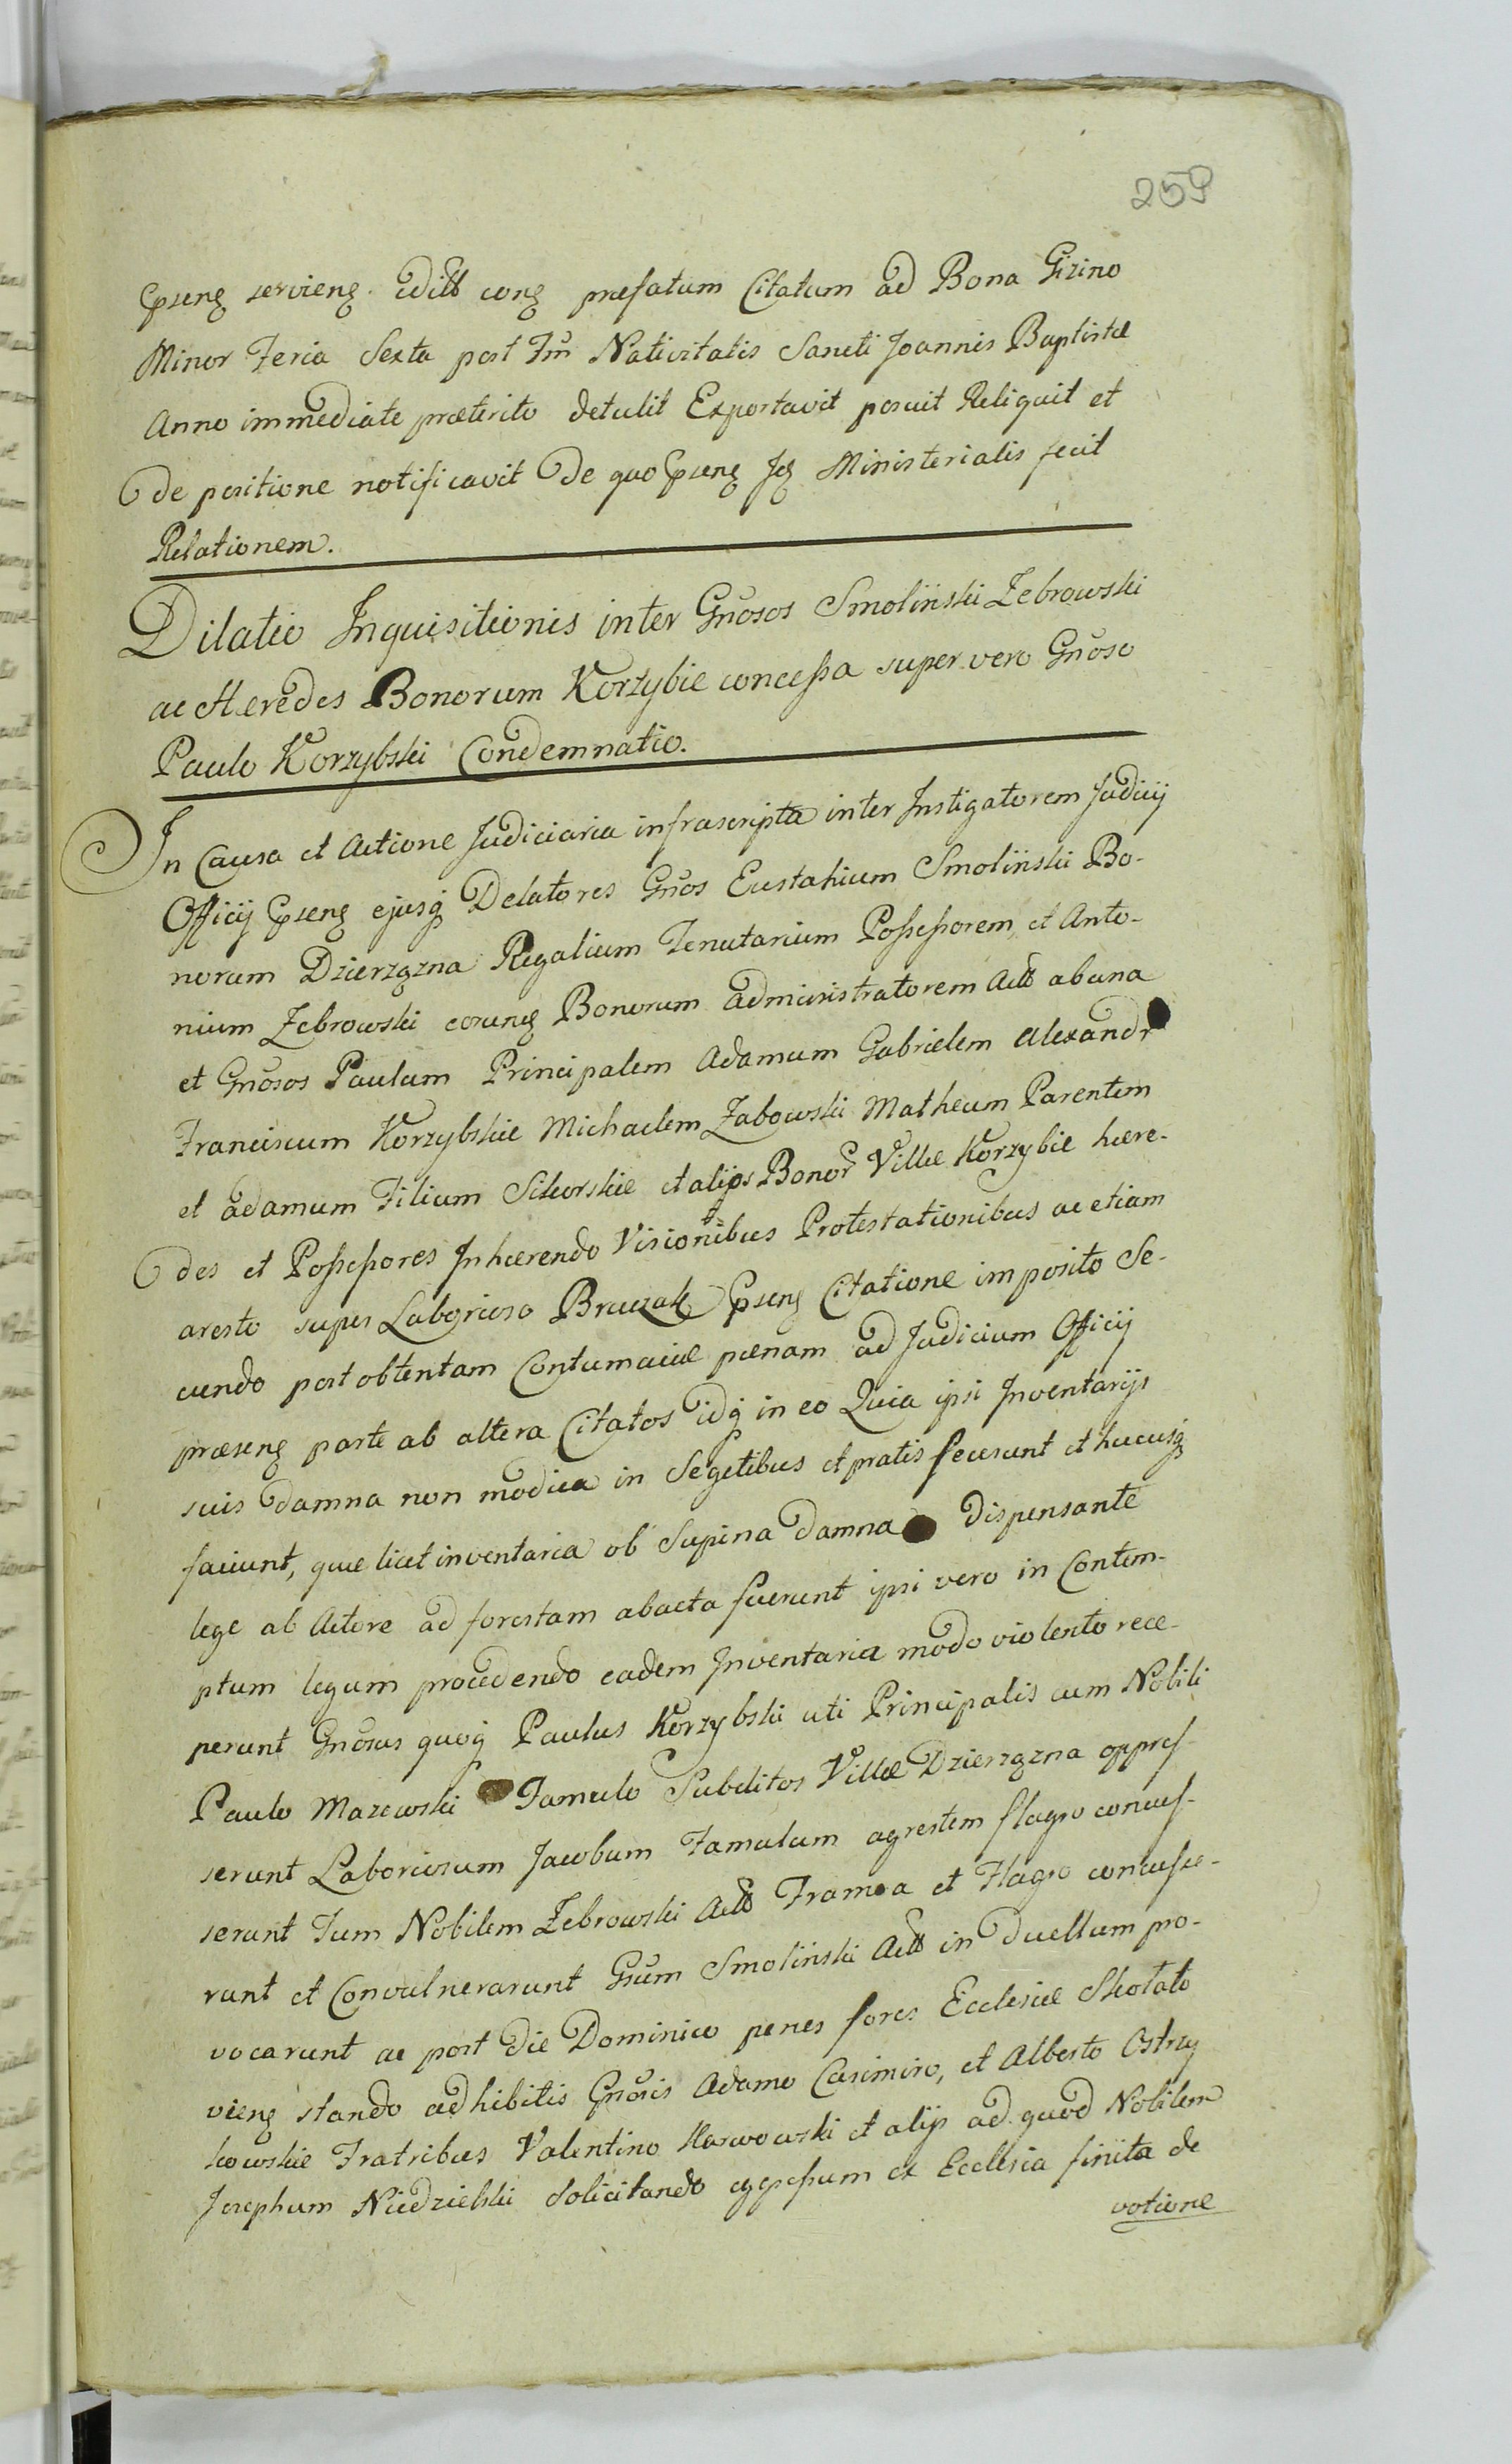 259
Epseng servieng. Editt cong præfatum Citatum ad Bona Gizino
Minor Feria Sexta post Fm̃ Nativitatis Sancti Joannis Baptistæ
Anno immediate præterito detulit Exportavit posuit Reliquit et
de positione notificavit De quo Epseng Jg Ministerialis fecit
Relationem.
Dilatio Inquisitionis inter Gñosos Smolinski Zebrowski
ac Heredes Bonorum Korzybie concessa super vero Gñoso
Paulo Korzybski Condemnatio.
In Causa et Actione Judiciaria infrascripta inter Instigatorem Judicij
Officij Epseng ejusq Delatores Gños Eustahium Smolinski Bo-
norum Dzierzgzna Regalium Tenutarium Possessorem et Anto-
nium Zebrowski eorung Bonorum administratorem Actt ab una
et Gñosos Paulum Principalem Adamum Gabrielem Alexandr
Franciscum Korzybskie Michaelem Zabowski Matheum Parentem
et Adamum Filium Sikorskie et alijos Bonor Villæ Korzybie hære-
des et Possessores Inhærendo Visionibus Protestationibus ac etiam
aresto super Laborioso Bruzak Epseng Citatione imposito Se-
cundo post obtentam Contumaciæ pœnam ad Judicium Officij
præseng parte ab altera Citatos idq in eo Quia ipsi Inventarijs
suis damna non modica in Segetibus et pratis fecerunt et hucusq
faciunt, quæ licet inventaria ob Supina damna Dispensante
lege ab Actore ad forestam abacta fuerunt ipsi vero in Contem-
ptum legum procedendo eadem Inventaria modo violento rece-
perunt Gñosus quoq Paulus Korzybski uti Principalis cum Nobili
Paulo Mazewski Famulo Subditos Villæ Dzierzgzna oppres-
serunt Laboriosum Jacobum Famulum agrestem flagro concus-
serunt Tum Nobilem Zebrowski Actt Framea et Flagro concusse-
runt et Convulnerarunt Gsum Smolinski Actt in duellum pro-
vocarunt ac post die Dominico penes fores Ecclesiæ Skotato
vieng stando adhibitis Gñosis Adamo Casimiro, et Alberto Ostrzy
kowskie Fratribus Valentino Karwowski et alijs ad quod Nobilem
Josephum Niedzielski Solicitando egressum ex Ecclesia finita de
votione